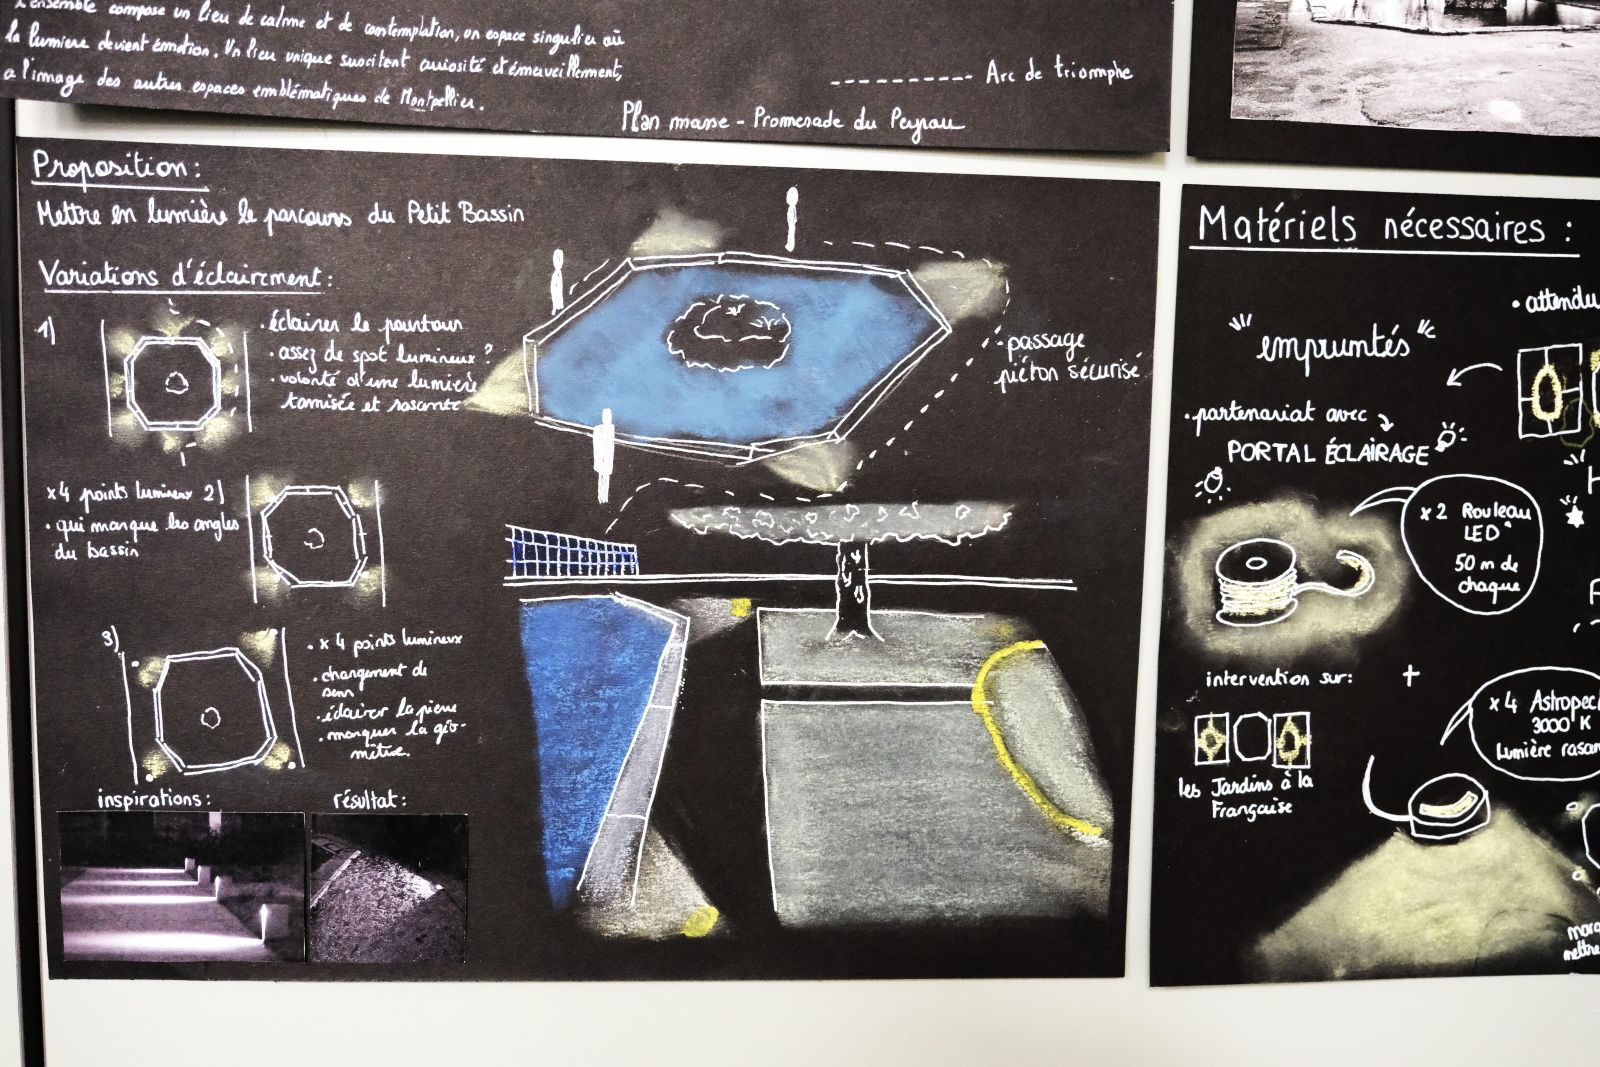 L'ensemble compose un lieu de calme et de contemplation, un espace singulier où
la lumière devient émotion. Un lieu unique suscitent curiosité et émerveillement,
a l'image des autres espaces emblématiques de Montpellier.
---------- Arc de triomphe
Plan masse - Promenade du Peyrou
Proposition :
Mettre en lumière le parcours du Petit Bassin
Variations d'éclairement :
1)
• éclairer le pourtour
• assez de spot lumineux ?
• volonté d'une lumière
tamisée et rasante
x4 points lumineux 2)
• qui marque les angles
du bassin
3)
• x 4 points lumineux
• changement de
sens
• éclairer la pierre
• marquer la géo-
métrie.
inspirations :
résultat :
passage
piéton sécurisé
Matériels nécessaires :
• attendu
"empruntés"
• partenariat avec
PORTAL ÉCLAIRAGE
x 2 Rouleau
LED
50 m de
chaque
intervention sur :
+
les Jardins à la
Française
x 4 Astropec
3000 K
Lumière rasan
mettre